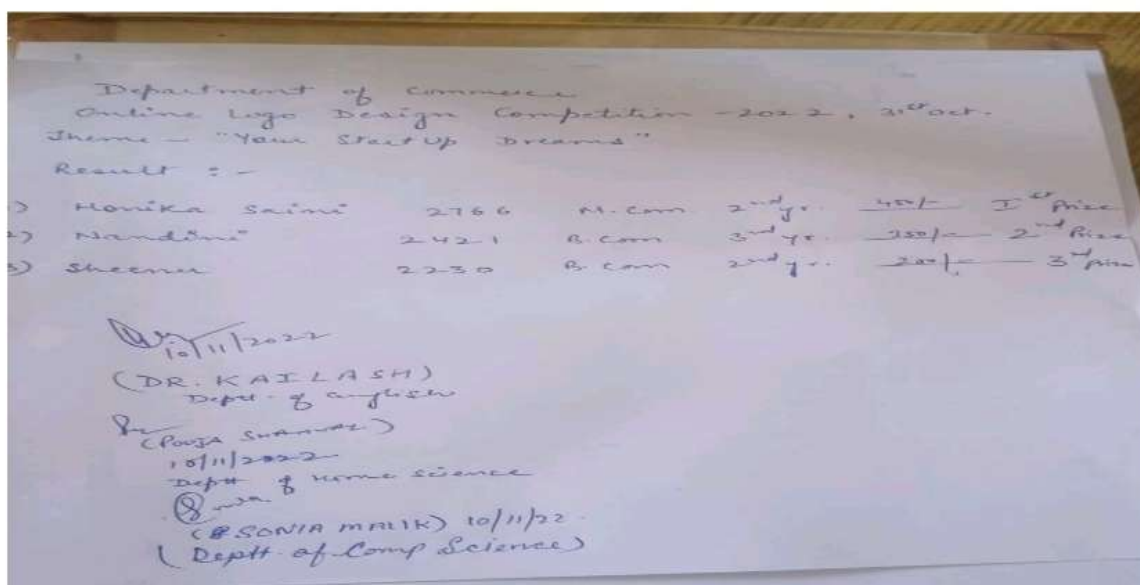 Department of Commerce
Online Logo Design Competition - 2022, 31st Oct.
Theme - "Your Start Up Dreams"
Result :-
1) Monika Saini 2766 M.Com 2nd yr. 450/- Ist Prize
2) Nandini 2421 B.Com 3rd yr. 350/- 2nd Prize
3) Sheenu 2230 B.Com 2nd yr. 200/- 3rd Prize
10/11/2022
(DR. KAILASH)
Deptt. of English
(POOJA
10/11/2022
Deptt of Home Science
(SONIA MALIK) 10/11/22
(Deptt. of Comp Science)